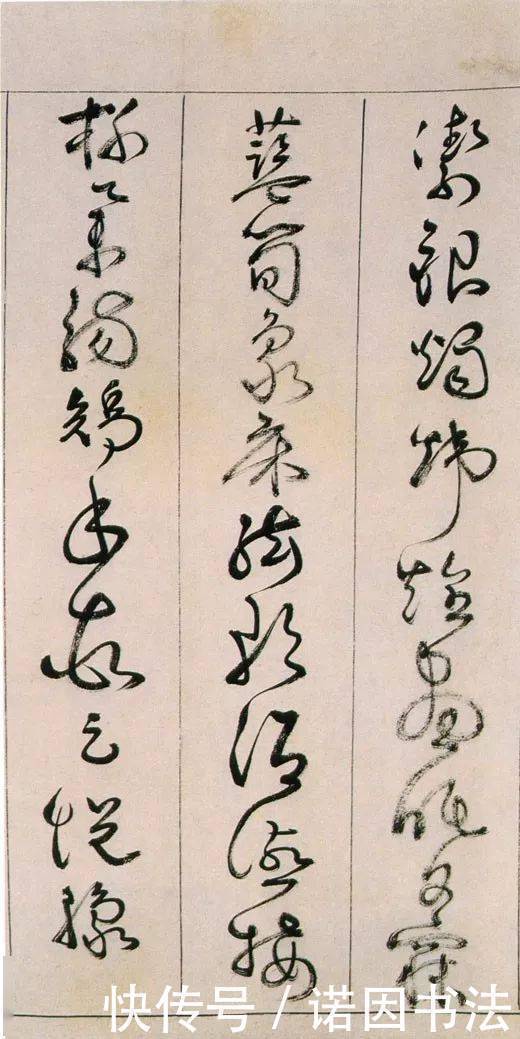 潔銀燭煒煌晝眠夕寐
藍筍象床絃歌酒讌接
杯舉觴矯手頓足悅豫
快传号/诺因书法